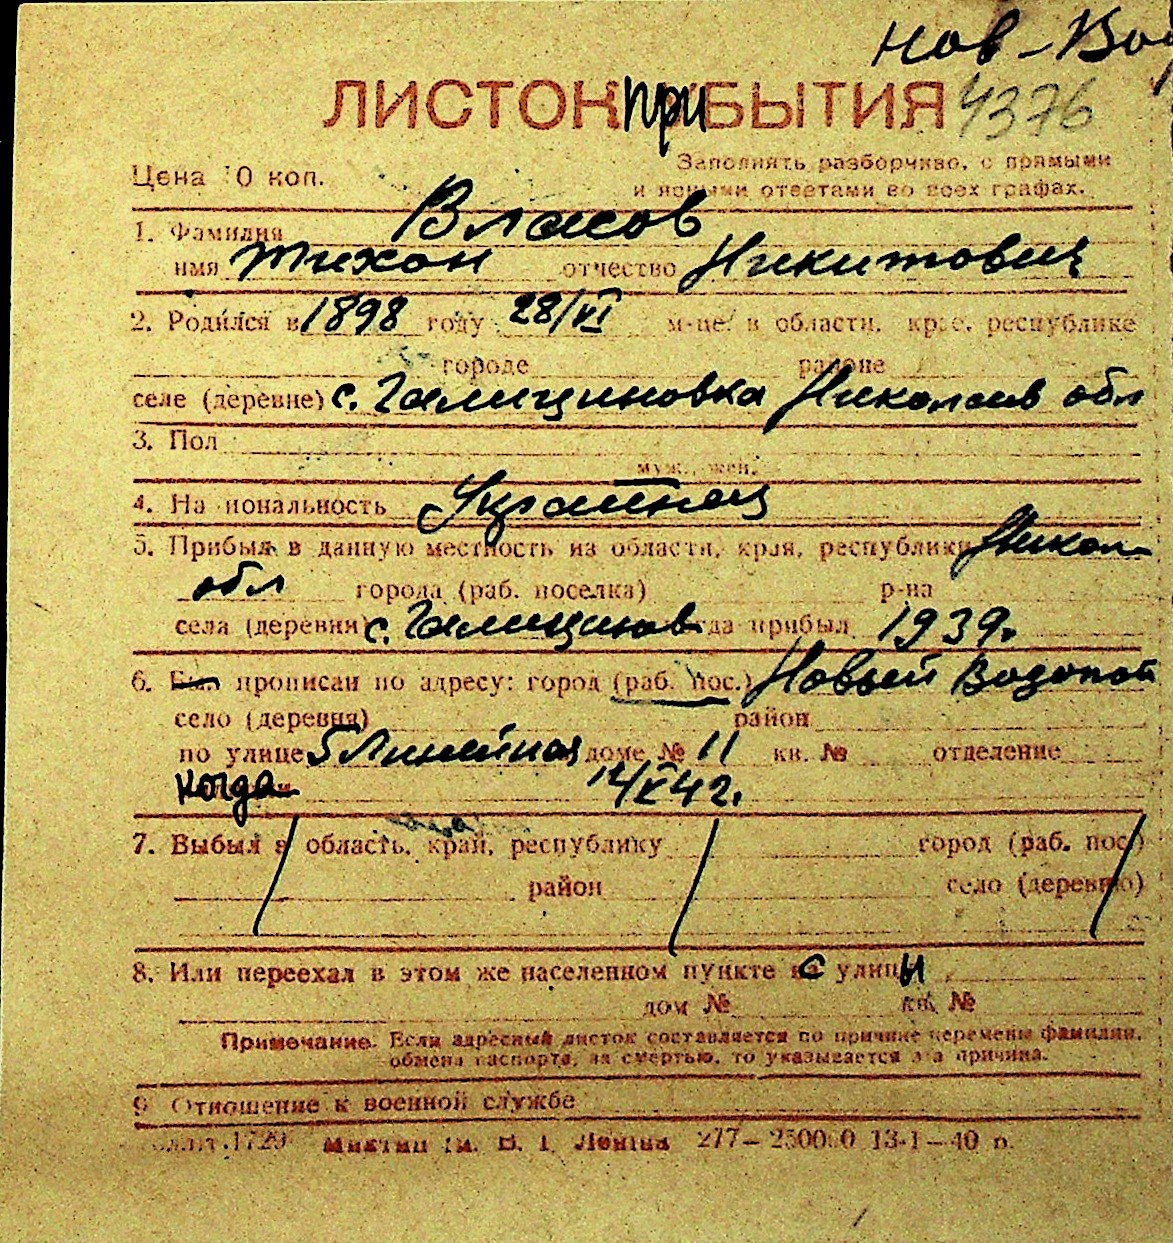 Нов-Вод
ЛИСТОК ПРИБЫТИЯ 4376
Цена 10 коп. Заполнять разборчиво, с прямыми
и ясными ответами во всех графах.
1. Фамилия Власов
имя Тихон отчество Никитович
2. Родился в 1898 году 28/VI м-це в области, крае, республике
городе районе
селе (деревне) с. Галициновка Николаев обл
3. Пол
муж., жен.
4. Национальность Украинец
5. Прибыл в данную местность из области, края, республики Никол
обл города (раб. поселка) р-на
села (деревни) с. Галицинов когда прибыл 1939г.
6. Был прописан по адресу: город (раб. пос.) Новый Водопой
село (деревня) район
по улице 5 Линейная доме № 11 кв. № отделение
когда 14/V 42г.
7. Выбыл в область, край, республику город (раб. пос.)
район село (деревню)
8. Или переехал в этом же населенном пункте с улицы
дом № кв. №
Примечание. Если адресный листок составляется по причине перемены фамилии,
обмена паспорта, за смертью, то указывается эта причина.
9. Отношение к военной службе
1729 Миктип ім. В. І. Леніна 277—250000 13-1—40 р.